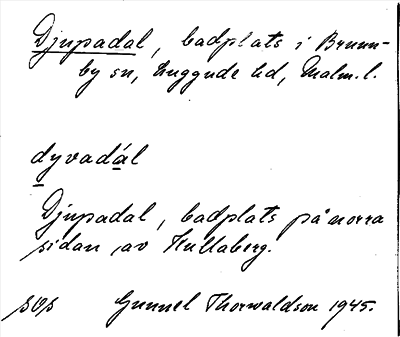 Djupadal, badplats i Brunn-
by sn, Luggude hd, Malm. l.
dyvadál
Djupadal, badplats på norra
sidan av Kullaberg.
Gunnel Thorwaldson 1945.